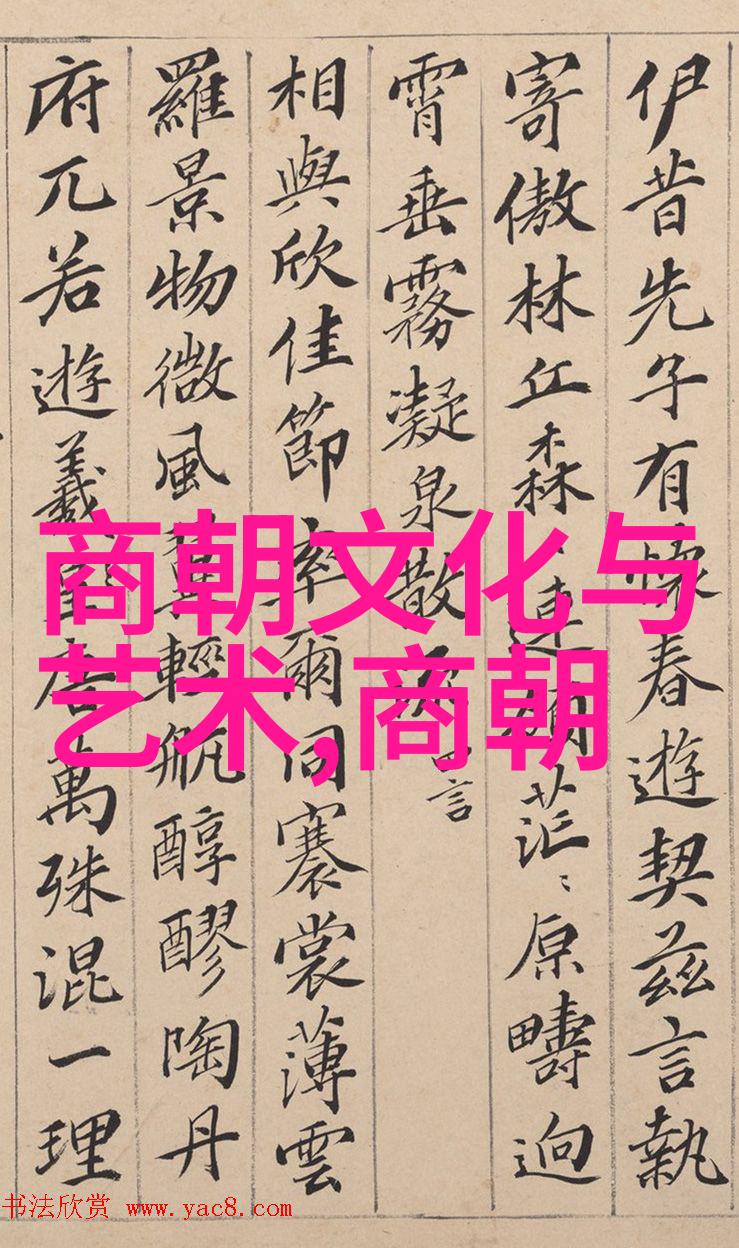 伊昔先子有懷春遊契茲言執
寄傲林丘森〻連嶺茫〻原疇迥
霄垂霧凝泉散流
言
相與欣佳節率爾同褰裳薄雲
羅景物微風翼輕航醇醪陶丹
府兀若遊羲唐萬殊混一理
商朝文化与
艺术,商朝
书法欣赏 www.yac8.com